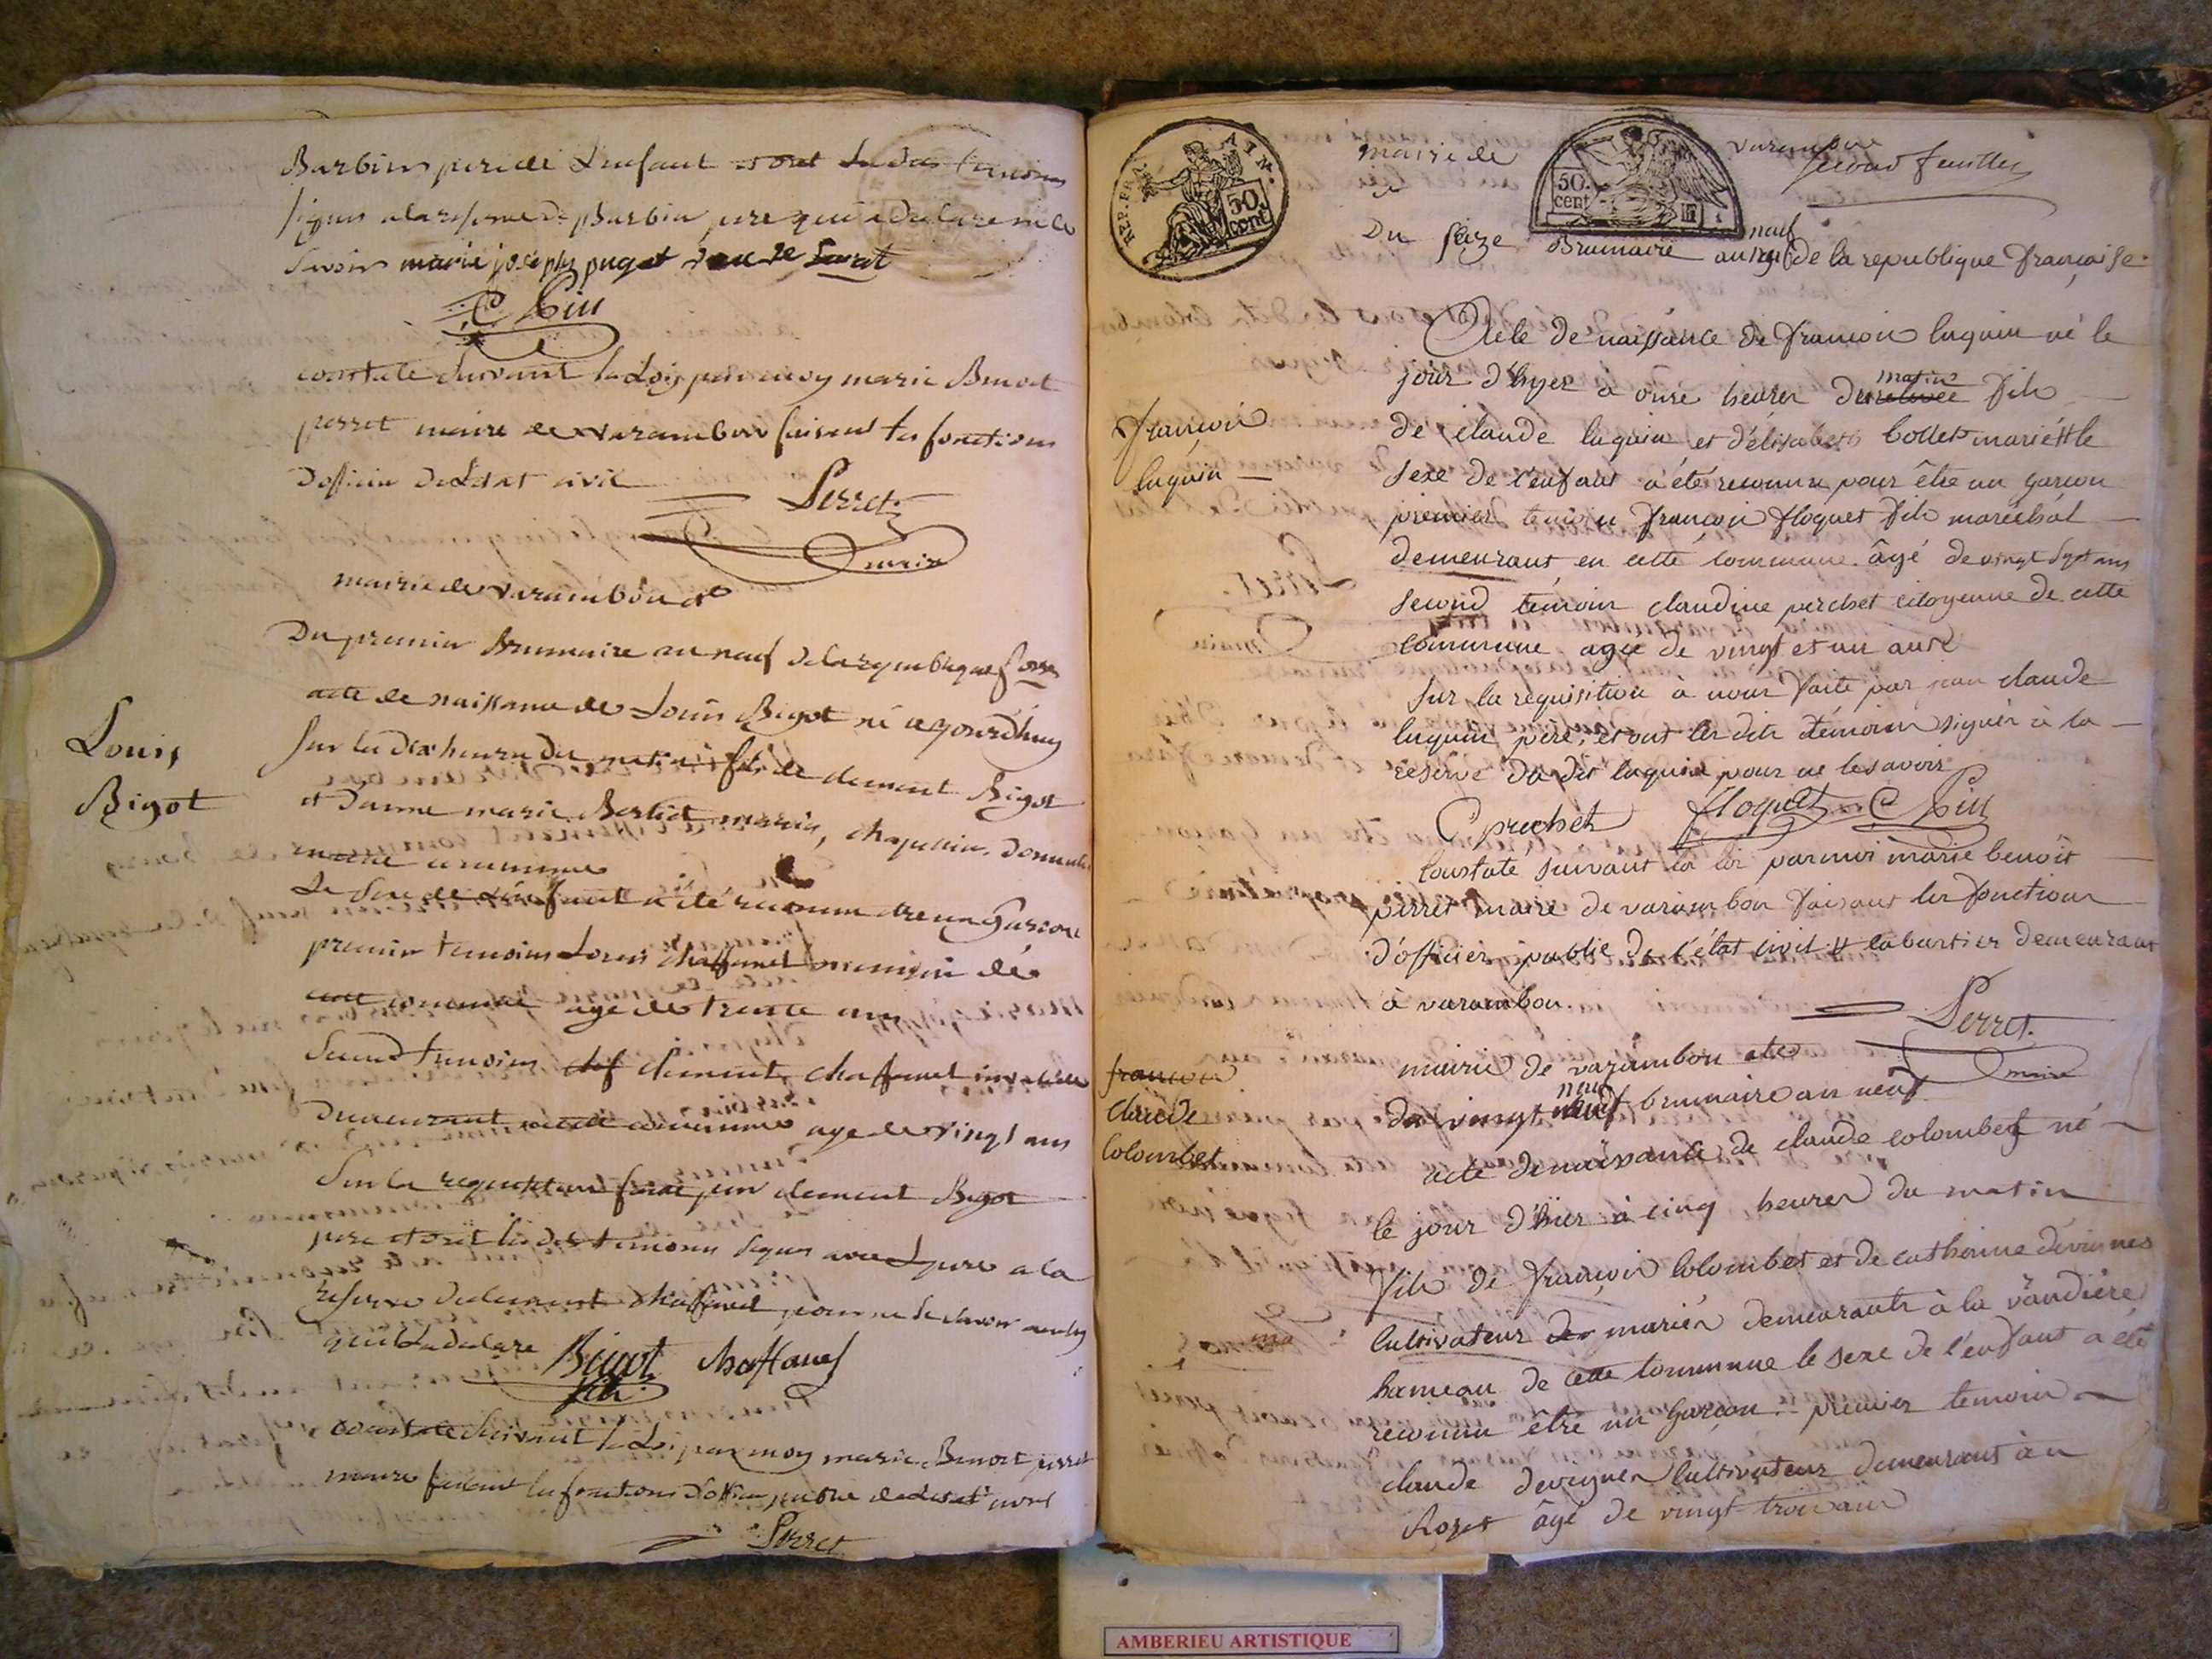 Barbier pere de Lenfant et ont Les dits temoins
signés a la reserve de Barbin pere qui a declaré ne le
savoir marie joseph puget
C Pin
constaté suivant la Loy par moy marie Benoit
perret maire de varambon faisant les fonctions
d'officier de Létat civil
Perret
maire
mairie de varambon
Du premier Brumaire an neuf de la republique
Louis
Bigot
acte de naissance de Louis Bigot né aujourd'huy
sur les dix heures du matin fils de clement Bigot
et d'anne marie Berliet mariés,
commune
Le sexe de Lenfant a été reconnu etre un Garson
premier temoins Louis chaffanel de
cette commune age de trente ans
second temoins clement chaffanel
demeurant commune age de vingt ans
Sur la requisition faite par clement Bigot
pere et ont les dits temoins signes avec Lepere a la
reserve de clement chaffanel pour ne le savoir
declare
Bigot chaffanel
constaté suivant la Loi par moy marie Benoit perret
maire faisant les fonctions d'officier public de Letat civil
Perret
REP. FRA.
50 cent
50. cent
mairie de varambon
second feuillet
Du seize Brumaire an neuf de la republique française.
françois
luquin
Acte de naissance de françois luquin né le
jour d'hyer à onze heures du matin fils
de claude luquin et d'élisabeth bollet mariés le
sexe de l'enfant a été reconnu pour être un garcon
premier temoin françois floquet fils maréchal
demeurant en cette commune âgé de vingt sept ans
second temoin claudine perchet citoyenne de cette
commune agée de vingt et un ans
Sur la requisition à nous faite par jean claude
luquin père, et ont les dits témoins signés à la
réserve du dit luquin pour ne le savoir
C prechet floquet C Pin
Constaté suivant la loi par moi marie benoît
perret maire de varambon faisant les fonctions
d'officier public de l'état civil # demeurant
à varambon.
Perret
maire
mairie de varambon
françois
claude
Colombet
du vingt neuf brumaire an neuf
acte de naissance de claude colombet né
le jour d'hier à cinq heures du matin
fils de françois Colombet et de catherine devignes
Cultivateur mariés demeurants à la vaudière
hameau de cette commune le sexe de l'enfant a été
reconnu être un garcon. premier temoin
claude devignes Cultivateur demeurant au
Rozet âgé de vingt trois ans
AMBERIEU ARTISTIQUE